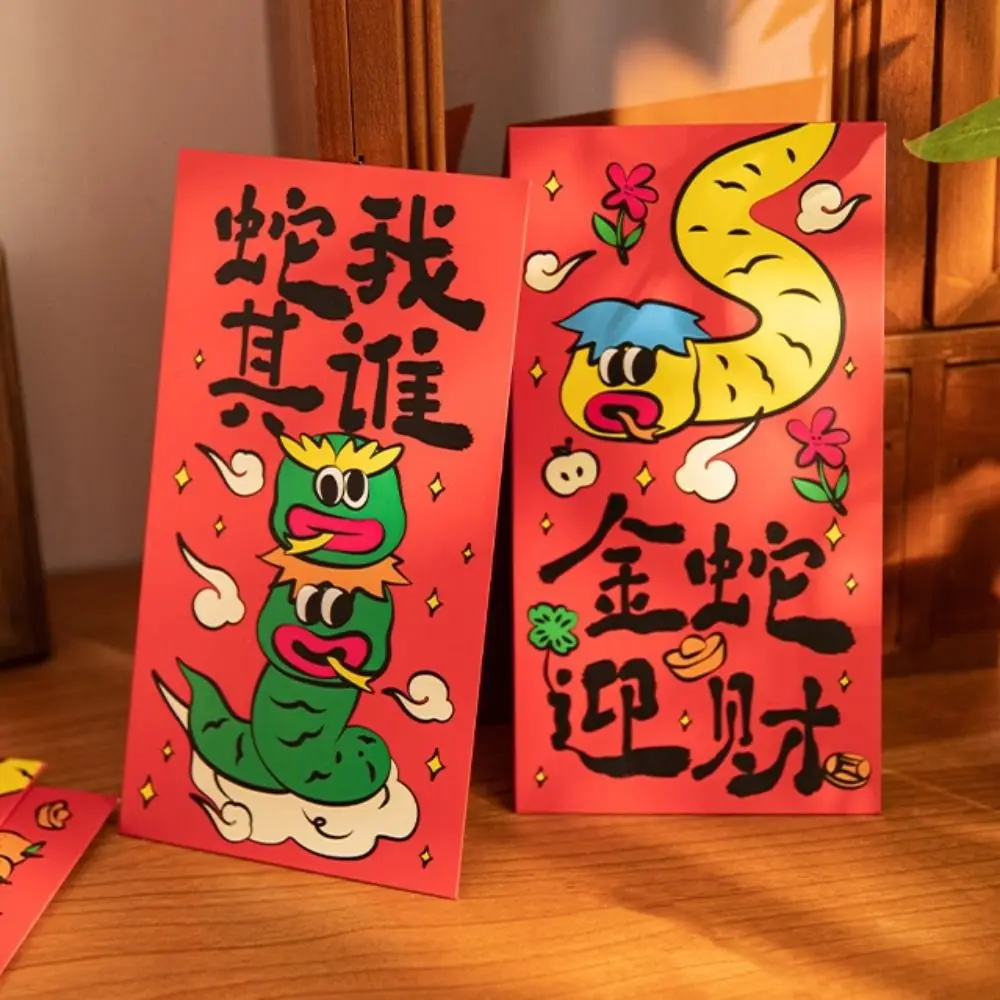 蛇我
其谁
金蛇
迎财